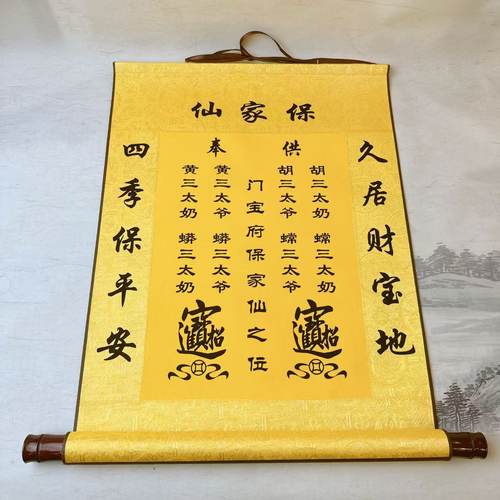 保家仙
久居财宝地
供奉
胡三太奶 蟐三太奶
胡三太爷 蟐三太爷
门宝府保家仙之位
黄三太爷 蟒三太爷
黄三太奶 蟒三太奶
招财进宝
招财进宝
四季保平安